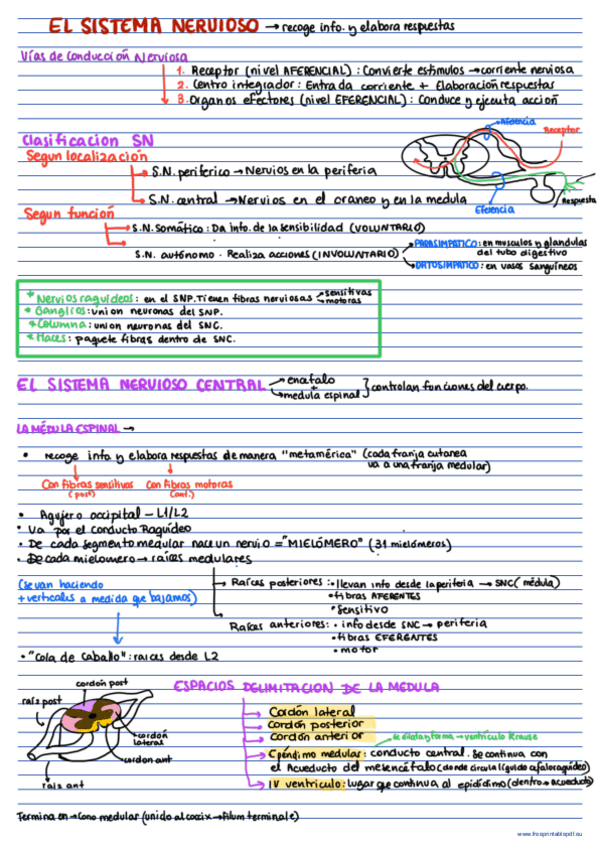 EL SISTEMA NERVIOSO → recoge info. y elabora respuestas
Vías de Conducción Nerviosa
1. Receptor (nivel AFERENCIAL) : Convierte estimulos → corriente nerviosa
2. Centro integrador : Entrada corriente + Elaboración respuestas
3. Organos efectores (nivel EFERENCIAL) : Conduce y ejecuta acción
Aferencia
Receptor
Clasificacion SN
Segun localización
S.N. periferico → Nervios en la periferia
S.N. central → Nervios en el craneo y en la medula
Respuesta
Eferencia
Segun función
S.N. Somático : Da info. de la sensibilidad (VOLUNTARIO)
S.N. autónomo · Realiza acciones (INVOLUNTARIO)
PARASIMPATICO : en musculos y glandulas
del tubo digestivo
ORTOSIMPATICO : en vasos sanguíneos
* Nervios raquideos : en el SNP. Tienen fibras nerviosas
sensitivas
motoras
* Ganglios : union neuronas del SNP.
* Columna : union neuronas del SNC.
* Haces : paquete fibras dentro de SNC.
EL SISTEMA NERVIOSO CENTRAL
encefalo
+
medula espinal
controlan funciones del cuerpo.
LA MÉDULA ESPINAL →
• recoge info y elabora respuestas de manera "metamérica" (cada franja cutanea
va a una franja medular)
Con fibras sensitivas
(post)
Con fibras motoras
(ant.)
• Agujero occipital – L1/L2
• Va por el conducto Raquídeo
• De cada segmento medular nace un nervio = "MIELÓMERO" (31 mielómeros)
• De cada mielomero → raíces medulares
(se van haciendo
+ verticales a medida que bajamos)
Raíces posteriores : • llevan info desde la periferia → SNC (médula)
• fibras AFERENTES
• sensitivo
Raíces anteriores : • info desde SNC → periferia
• fibras EFERENTES
• motor
• "Cola de Caballo" : raices desde L2
cordón post
raíz post
cordón
lateral
cordon ant
raiz ant
ESPACIOS DELIMITACION DE LA MEDULA
Cordón lateral
Cordón posterior
Cordón anterior
Se dilata y forma → ventrículo Krause
Epéndimo medular : conducto central. Se continua con
el Acueducto del mesencéfalo (donde circula líquido cefaloraquídeo)
IV ventriculo : lugar que continua al epidídimo (dentro → acueducto)
Termina en → Cono medular (unido al coccix → Filum terminale)
www.freeprintablepdf.eu